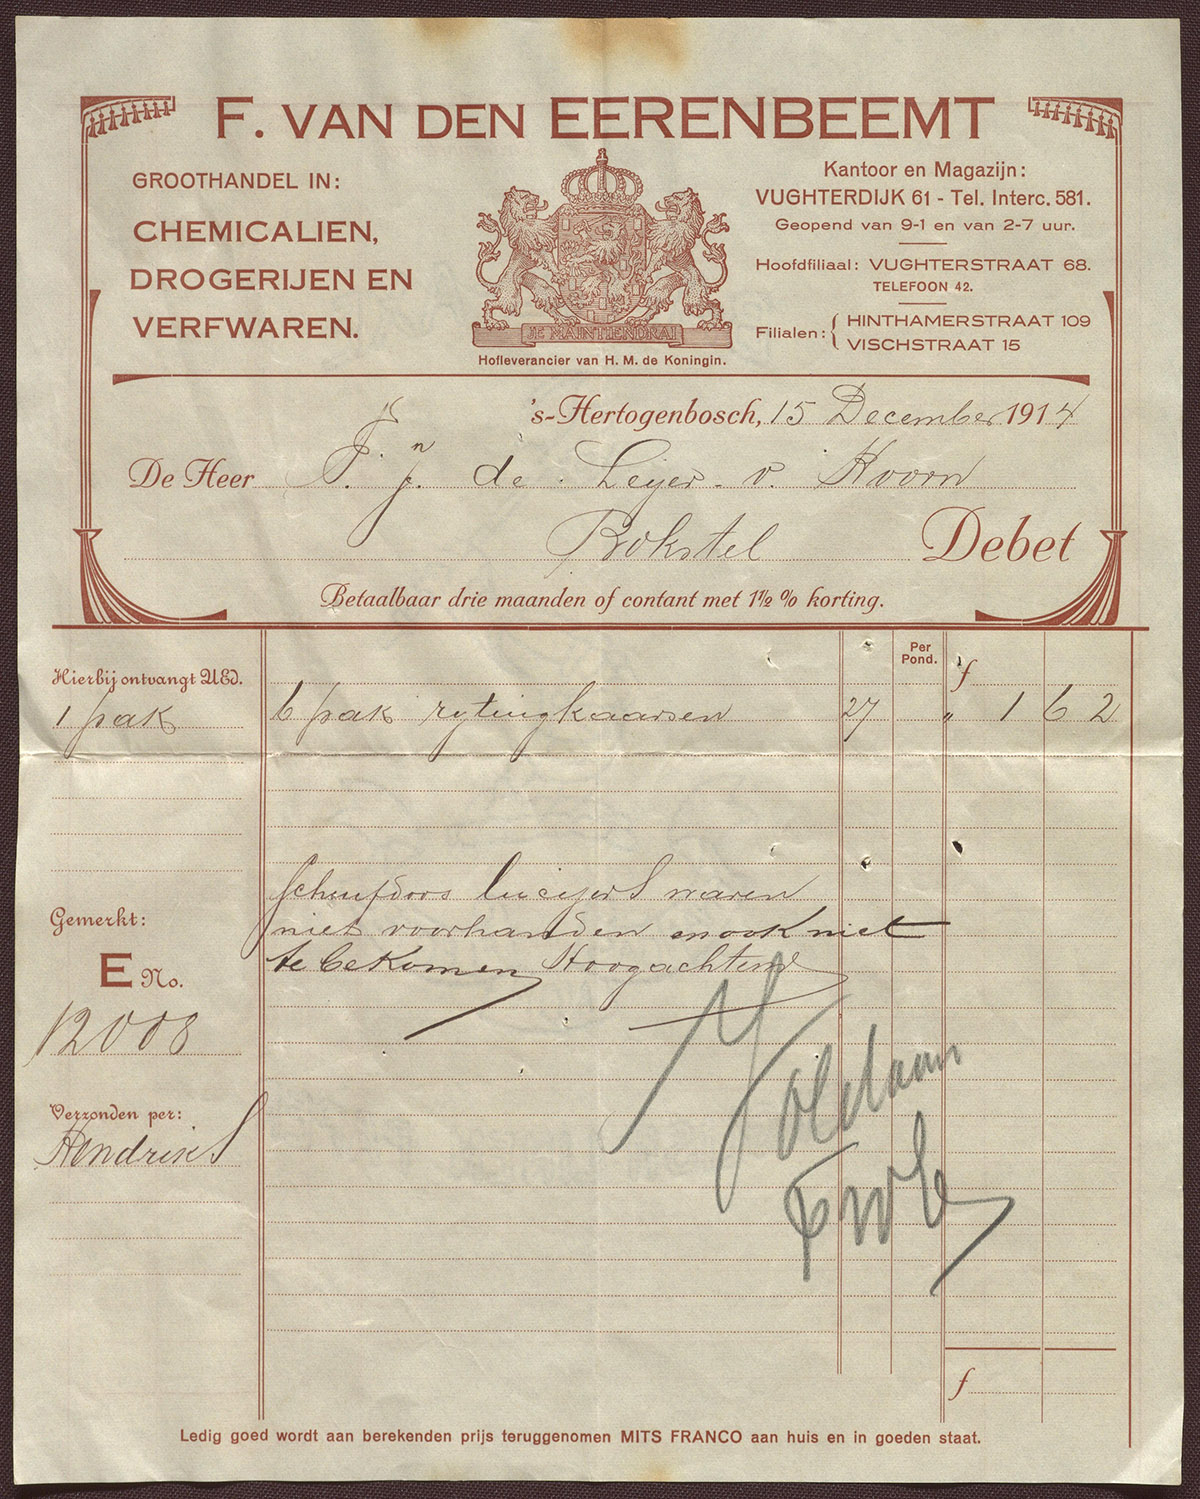 F. VAN DEN EERENBEEMT
GROOTHANDEL IN:
CHEMICALIEN,
DROGERIJEN EN
VERFWAREN.
JE MAINTIENDRAI
Hofleverancier van H. M. de Koningin.
Kantoor en Magazijn:
VUGHTERDIJK 61 - Tel. Interc. 581.
Geopend van 9-1 en van 2-7 uur.
Hoofdfiliaal: VUGHTERSTRAAT 68.
TELEFOON 42.
Filialen: HINTHAMERSTRAAT 109
VISCHSTRAAT 15
's-Hertogenbosch, 15 December 1914
De Heer F. J. de Leijer - v. Hoorn
Bokstel Debet
Betaalbaar drie maanden of contant met 1 1/2 % korting.
Per
Pond.
Hierbij ontvangt UEd. f
1 pak 6 pak rytuigkaarsen 27 " 1 62
Schuifdoos lucifers waren
niet voorhanden en ook niet
te bekomen Hoogachtend
Gemerkt:
E No.
12008
Voldaan
Verzonden per:
Hendriks
f
Ledig goed wordt aan berekenden prijs teruggenomen MITS FRANCO aan huis en in goeden staat.